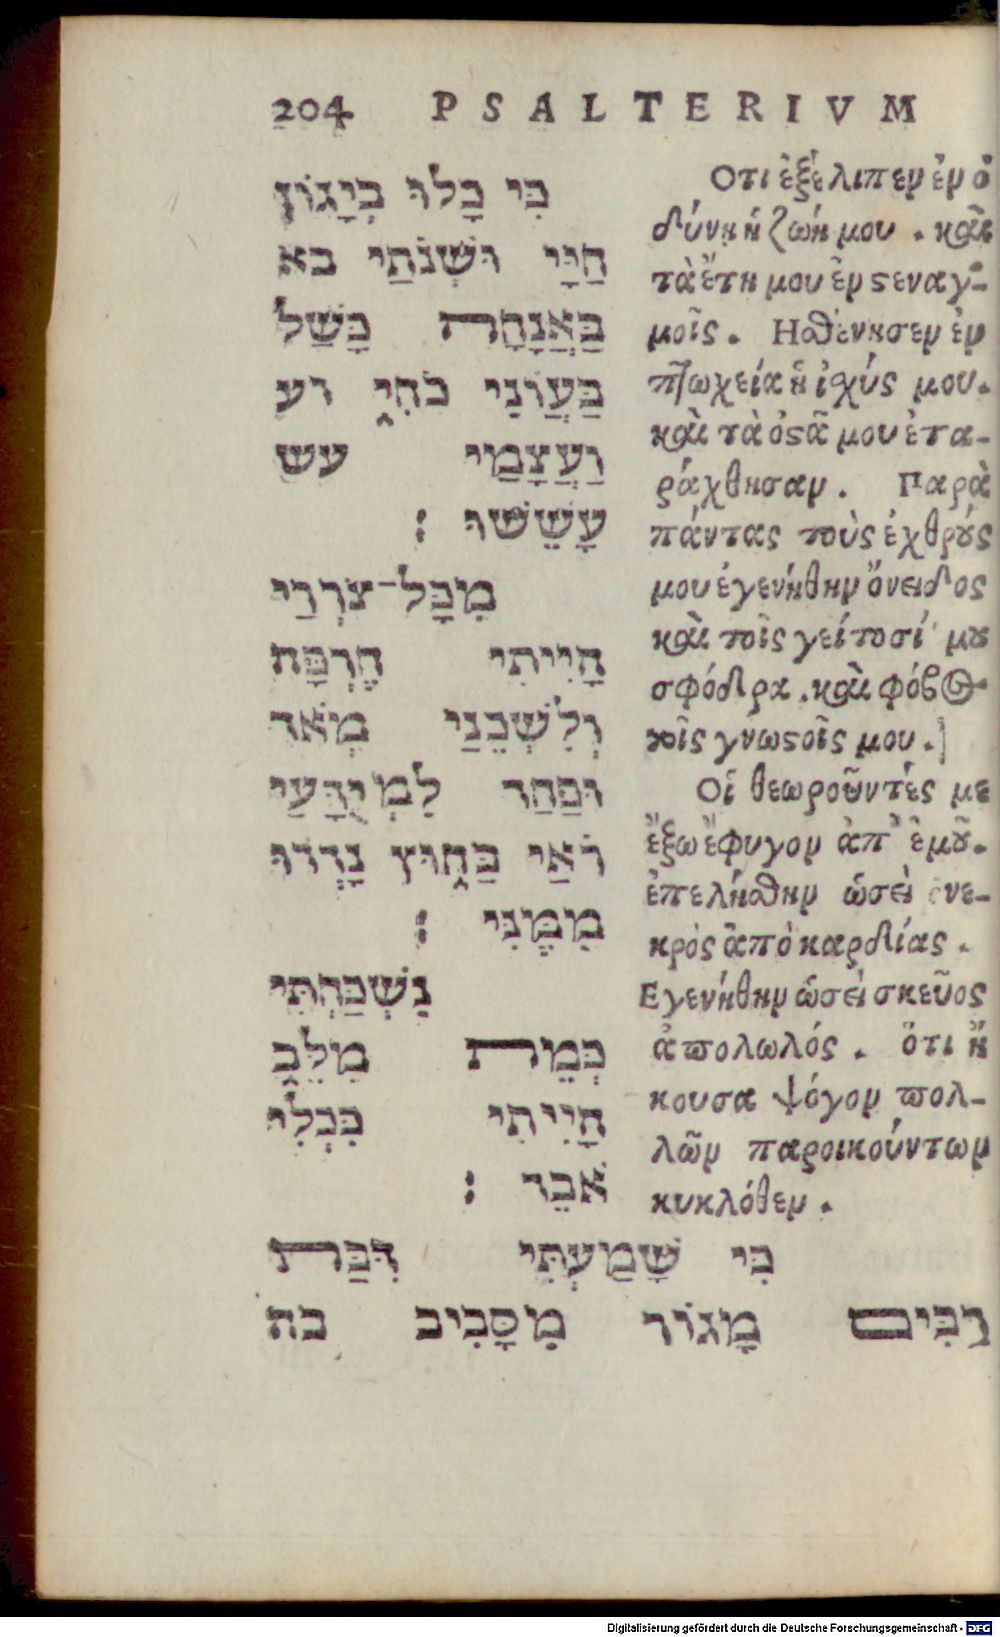 204 PSALTERIVM
כִּי כָלוּ בְיָגוֹן
חַיַּי וּשְׁנֹתַי בא
בַּאֲנָחָה כָּשַׁל
בַּעֲוֹנִי כֹחִי וע
וַעֲצָמַי עש
עָשֵׁשׁוּ :
מִכָּל־צֹרְרַי
הָיִיתִי חֶרְפָּה
וְלִשְׁכֵנַי מְאֹד
וּפַחַד לַמְיֻדָּעַי
רֹאַי בַּחוּץ נָדְדוּ
מִמֶּנִּי :
נִשְׁכַּחְתִּי
כְּמֵת מִלֵּב
הָיִיתִי כִּכְלִי
אֹבֵד :
כִּי שָׁמַעְתִּי דִּבַּת
רַבִּים מָגוֹר מִסָּבִיב בה
Οτι ἐξέλιπεν ἐν ὀ
δύνῃ ἡ ζωή μου . καὶ
τὰ ἔτη μου ἐν ϛεναγ-
μοῖς . Ησθένησεν ἐν
πτωχείᾳ ἡ ἰσχύς μου.
καὶ τὰ ὀϛᾶ μου ἐτα-
ράχθησαν . Παρὰ
πάντας τοὺς ἐχθρούς
μου ἐγενήθην ὄνειδος
καὶ τοῖς γείτοσί μου
σφόδρα . καὶ φόβος
τοῖς γνωϛοῖς μου .]
Οἱ θεωροῦντές με
ἔξω ἔφυγον ἀπ' ἐμοῦ.
ἐπελήσθην ὡσεὶ νε-
κρὸς ἀπὸ καρδίας .
Εγενήθην ὡσεὶ σκεῦος
ἀπολωλός . ὅτι ἤ
κουσα ψόγον πολ-
λῶν παροικούντων
κυκλόθεν .
Digitalisierung gefördert durch die Deutsche Forschungsgemeinschaft - DFG